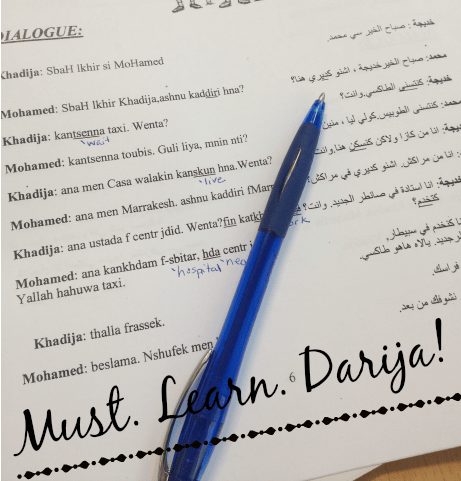 DIALOGUE:
Khadija: SbaH lkhir si MoHamed
Mohamed: SbaH lkhir Khadija,ashnu kaddiri hna?
Khadija: kantsenna taxi. Wenta?
wait
Mohamed: kantsenna toubis. Guli liya, mnin nti?
Khadija: ana men Casa walakin kanskun hna.Wenta?
live
Mohamed: ana men Marrakesh. ashnu kaddiri fMarr
Khadija: ana ustada f centr jdid. Wenta?fin katkh
Mohamed: ana kankhdam f-sbitar, hda centr j
hospital
Yallah hahuwa taxi.
Khadija: thalla frassek.
Mohamed: beslama. Nshufek men
6
خديجة: صباح الخير سي محمد.
محمد: صباح الخير خديجة ، اشنو كديري هنا؟
خديجة: كنتسنى الطاكسي.وانت؟
محمد: كنتسنى الطوبيس.كولي ليا ، منين
: انا من كازا ولاكن كنسكن هنا.وانت
: انا من مراكش. اشنو كديري في مراكش؟
خديجة: انا استادة في صانطر الجديد. وانت؟
كتخدم؟
نا كنخدم في سبيطار,
جديد. يالاه هاهو طاكسي.
فراسك.
نشوفك من بعد.
Must. Learn. Darija!